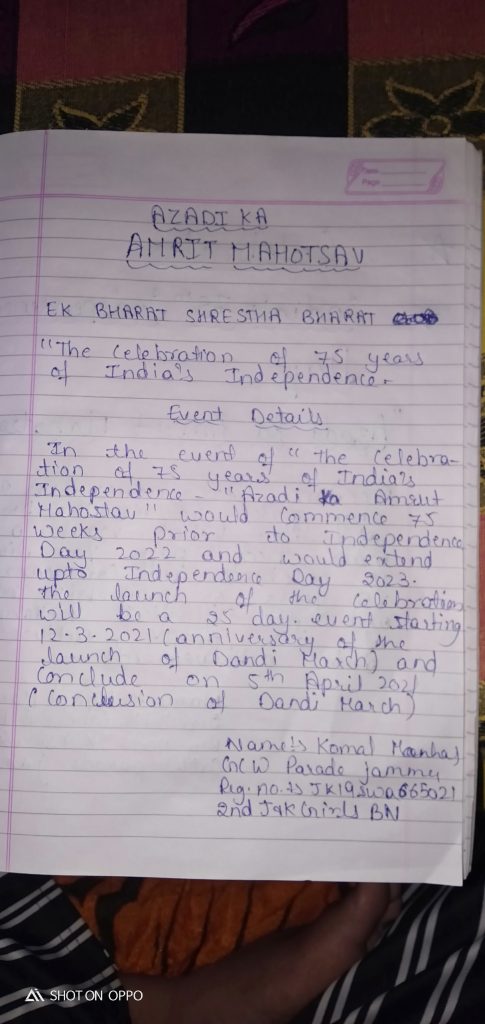 Date
Page
AZADI KA
AMRIT MAHOTSAV
EK BHARAT SHRESTHA BHARAT
"The Celebration of 75 years
of India's Independence.
Event Details
In the event of "the Celebra-
tion of 75 years of India's
Independence - "Azadi ka Amrit
Mahostav" would Commence 75
weeks prior to Independence
Day 2022 and would extend
upto Independence Day 2023.
the launch of the Celebration
will be a 25 day event starting
12.3.2021 (anniversary of the
launch of Dandi March) and
Conclude on 5th April 2021
(Conclusion of Dandi March)
Name:s Komal Manhas
GCW Parade jammu
Reg. no.:s JK19SWA665021
2nd J&K Girls BN
SHOT ON OPPO